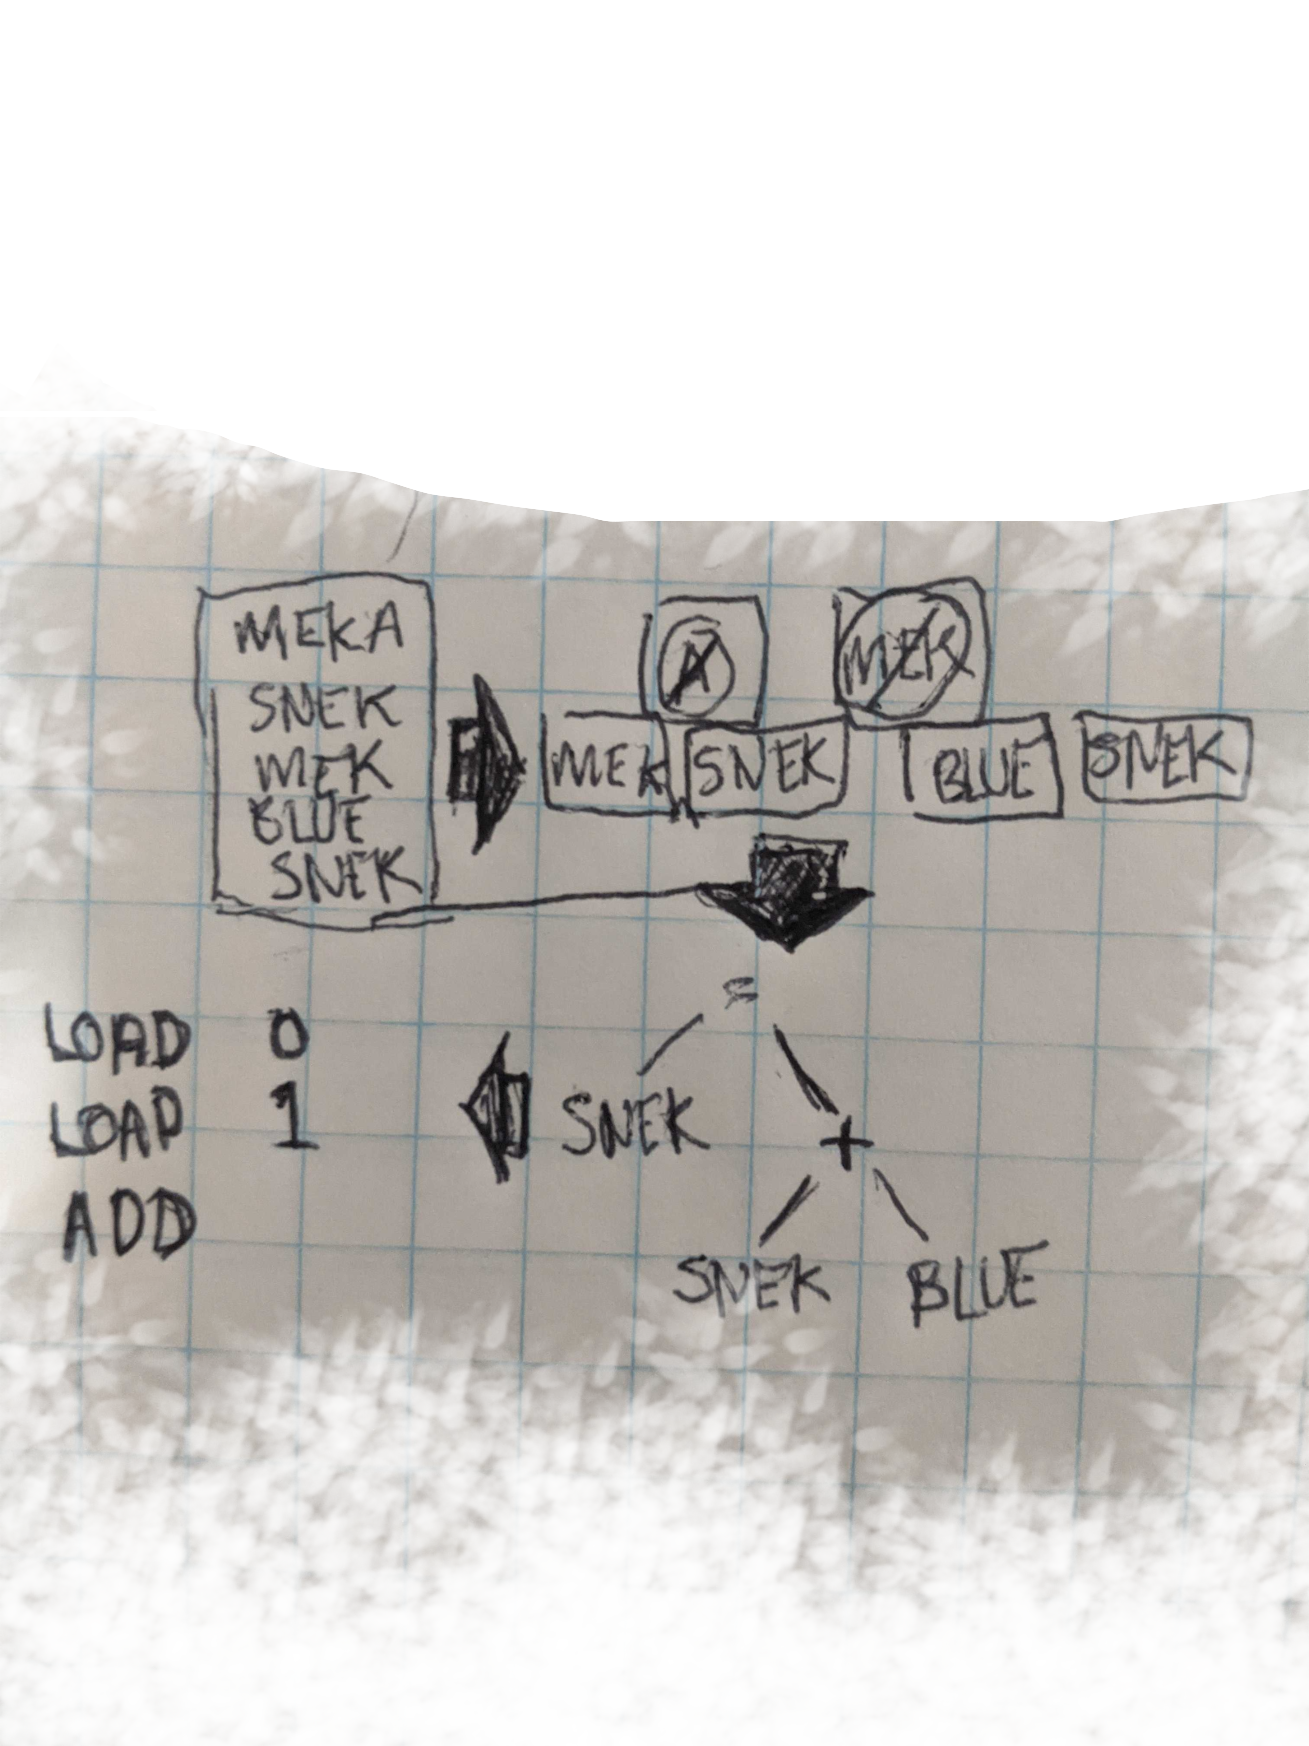 MEKA
SNEK
MEK
BLUE
SNEK
A MEK
MEK SNEK BLUE SNEK
=
SNEK
+
SNEK BLUE
LOAD 0
LOAD 1
ADD